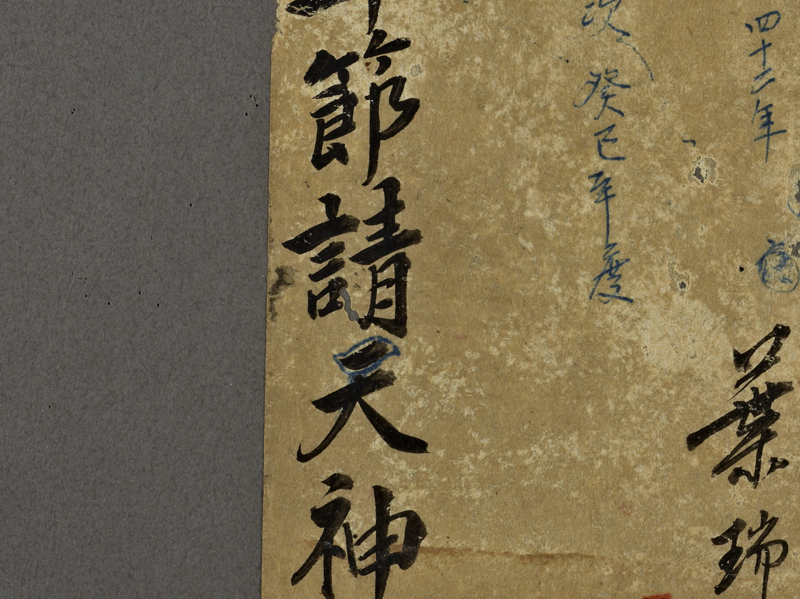 四十二年
葉瑞
次癸巳年度
節請天神